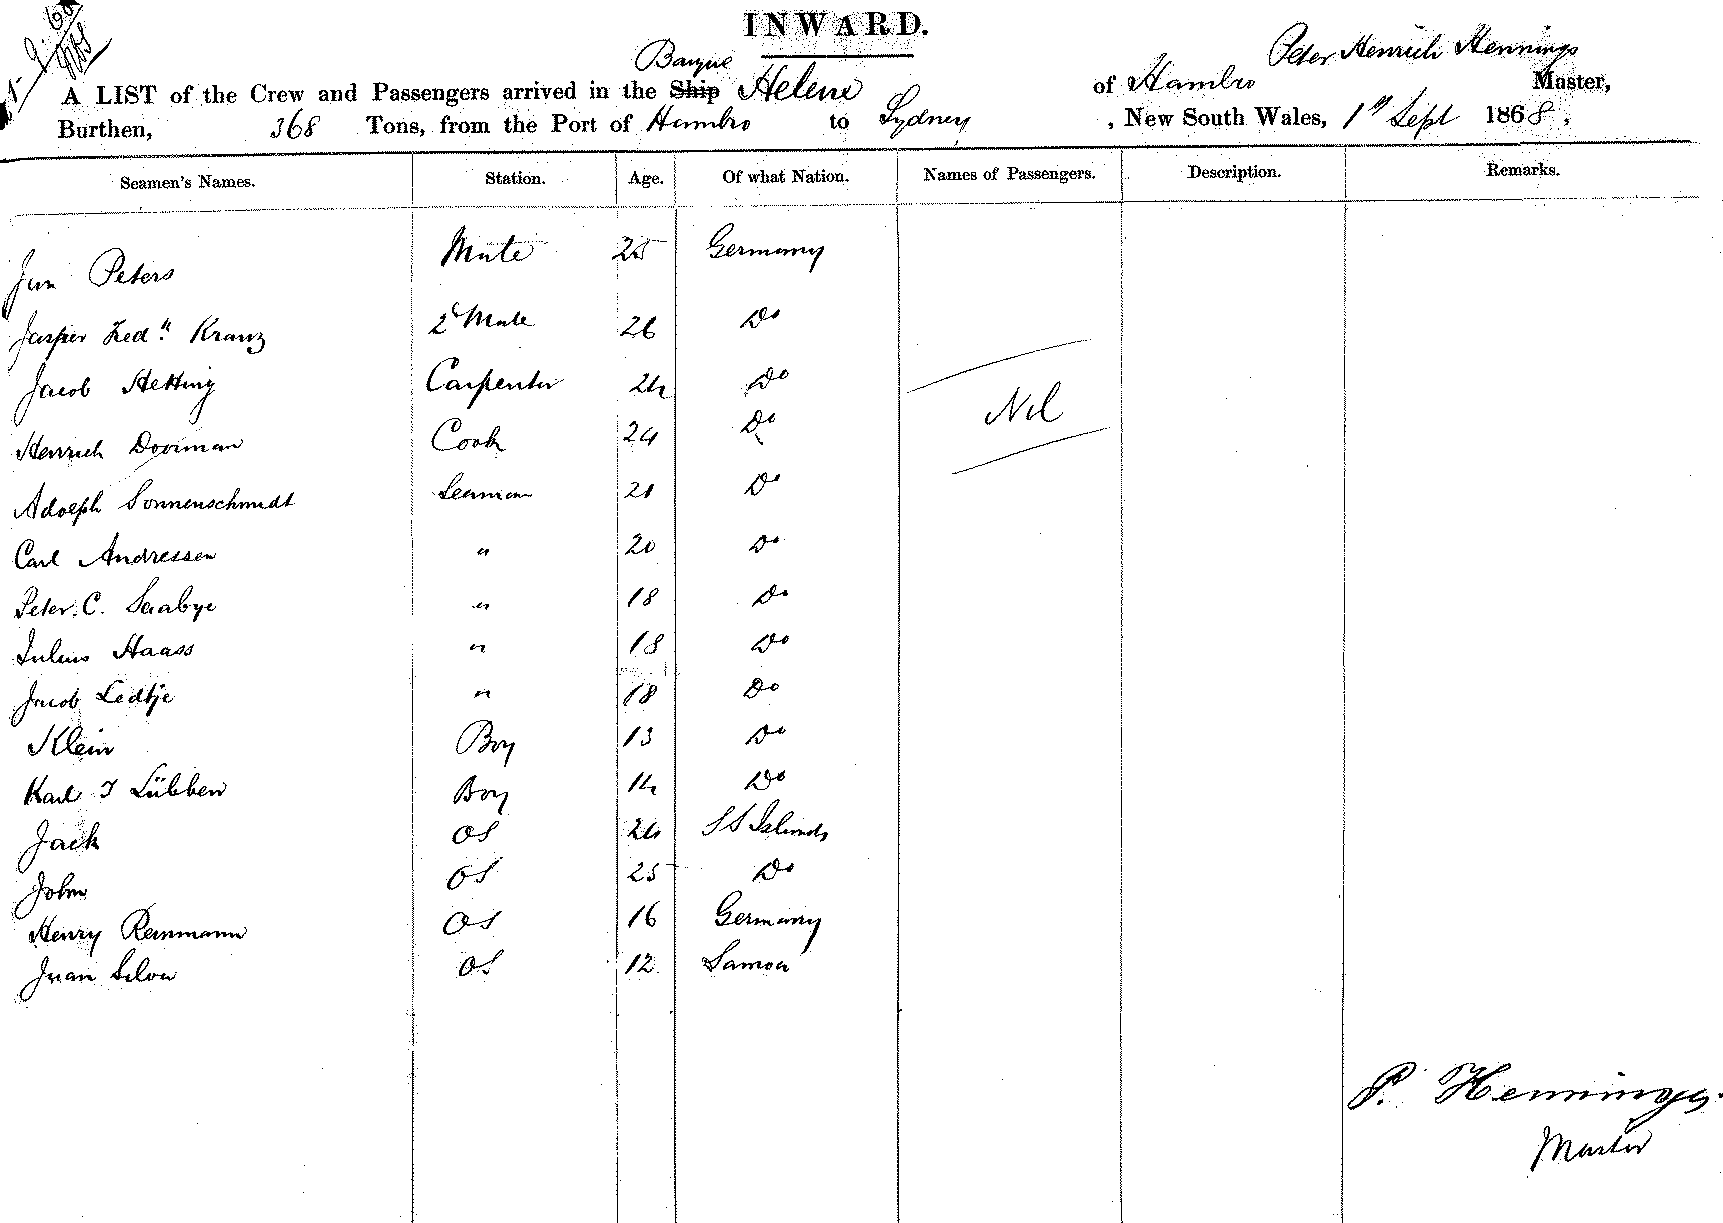 INWARD.
Barque Peter Henrich Hennings
A LIST of the Crew and Passengers arrived in the Ship Helene of Hambro Master,
Burthen, 368 Tons, from the Port of Hambro to Sydney, New South Wales, 1st Sept 1868.
Seamen's Names. Station. Age. Of what Nation. Names of Passengers. Description. Remarks.
Jan Peters Mate 25 Germany
Jasper Kranz 2d Mate 26 Do
Jacob Hetting Carpenter 24 Do
Nil
Henrich Dooiman Cook 24 Do
Adolph Sonnenschmidt Seaman 21 Do
Carl Andressen " 20 Do
Peter C. Saabye " 18 Do
Julius Haass " 18 Do
Jacob Ledtje " 18 Do
Klein Boy 13 Do
Karl J Lübben Boy 14 Do
Jack OS 24 SS Islands
John OS 25 Do
Henry Reinmann OS 16 Germany
Juan Silva OS 12 Samoa
P. Hennings.
Master